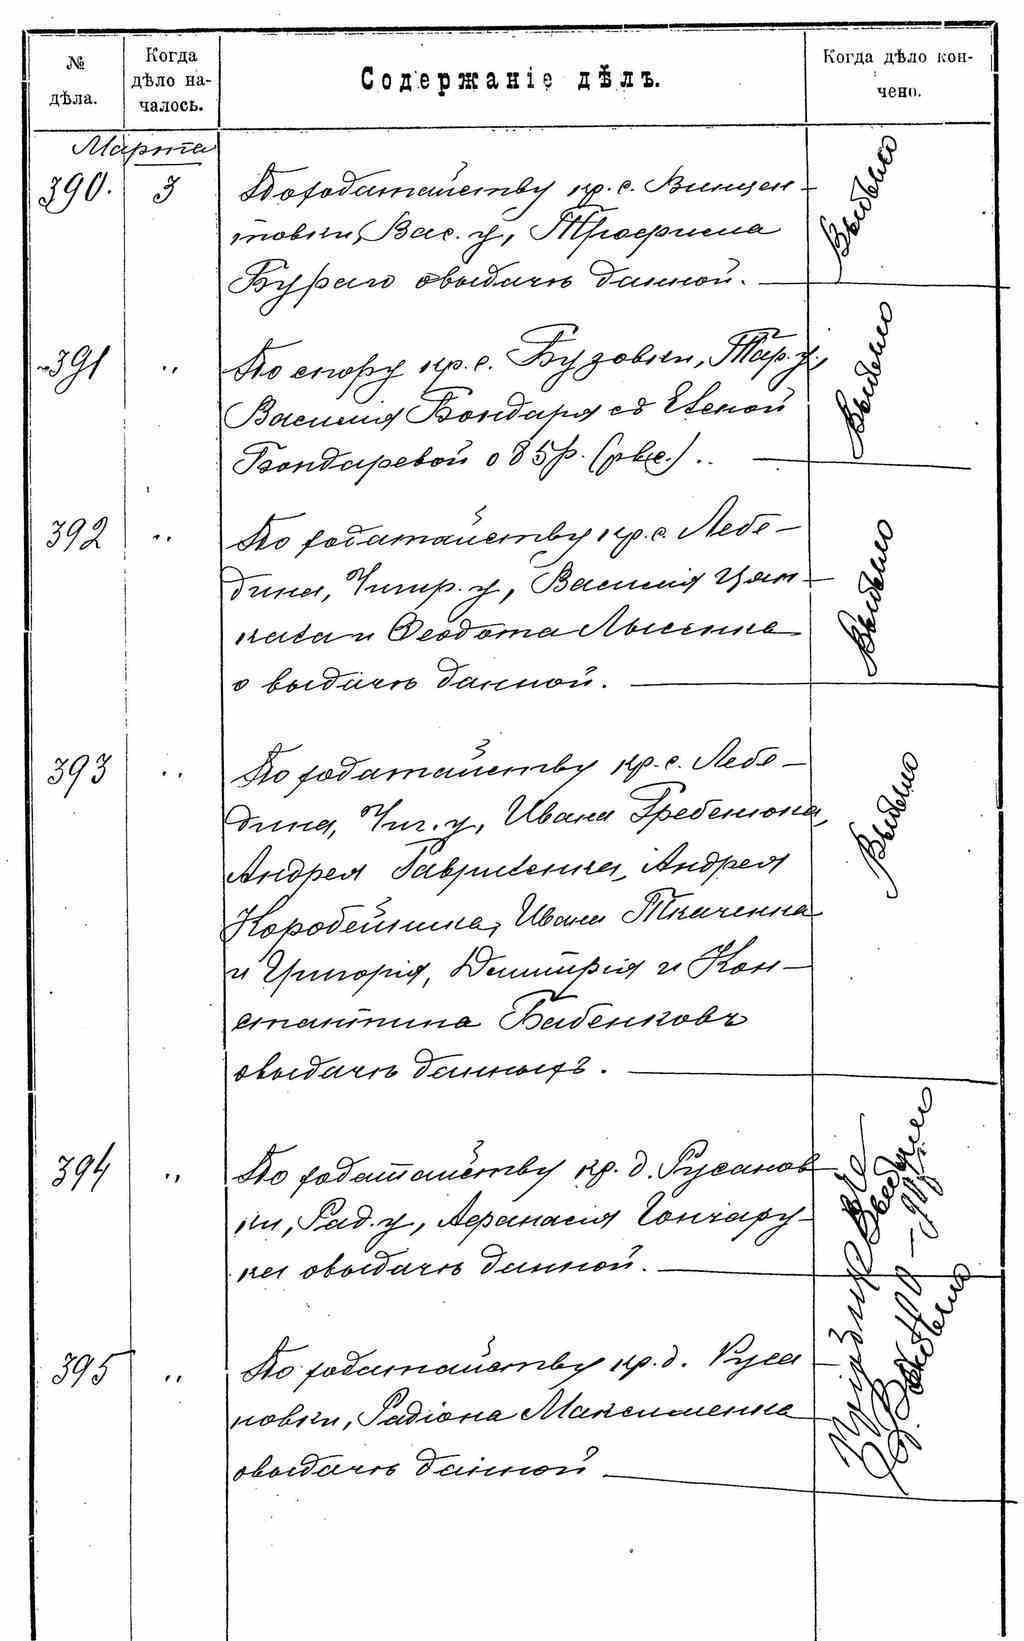 № дѣла.
Когда дѣло на-
чалось.
Содержаніе дѣлъ.
Когда дѣло кон-
чено.
Марта
390. 3 По ходатайству кр. с. Винцен-
товки, Вас. у, Трофима
Бураго о выдачѣ данной. —
Выбыло
391 " По спору кр. с. Бузовки, Тар. у.,
Василія Бондаря съ Евсной
Бондаревой о 85 р. —
Выбыло
392 " По ходатайству кр. с. Лебе-
дина, Чигир. у, Василія Цям-
кала и Ѳеодота Лысенка
о выдачѣ данной. —
Выбыло
393 " По ходатайству кр. с. Лебе-
дина, Чиг. у, Ивана Гребенюка,
Андрея Гавриленка, Андрея
Коробейника, Ивана Ткаченка
и Григорія, Димитрія и Кон-
стантина Бабенковъ
о выдачѣ данныхъ. —
Выбыло
394 " По ходатайству кр. д. Русанов
ки, Рад. у, Афанасія Гончару-
ка о выдачѣ данной. —
395 " По ходатайству кр. д. Руса
новки, Радіона Максименка
о выдачѣ данной —
Выбыло